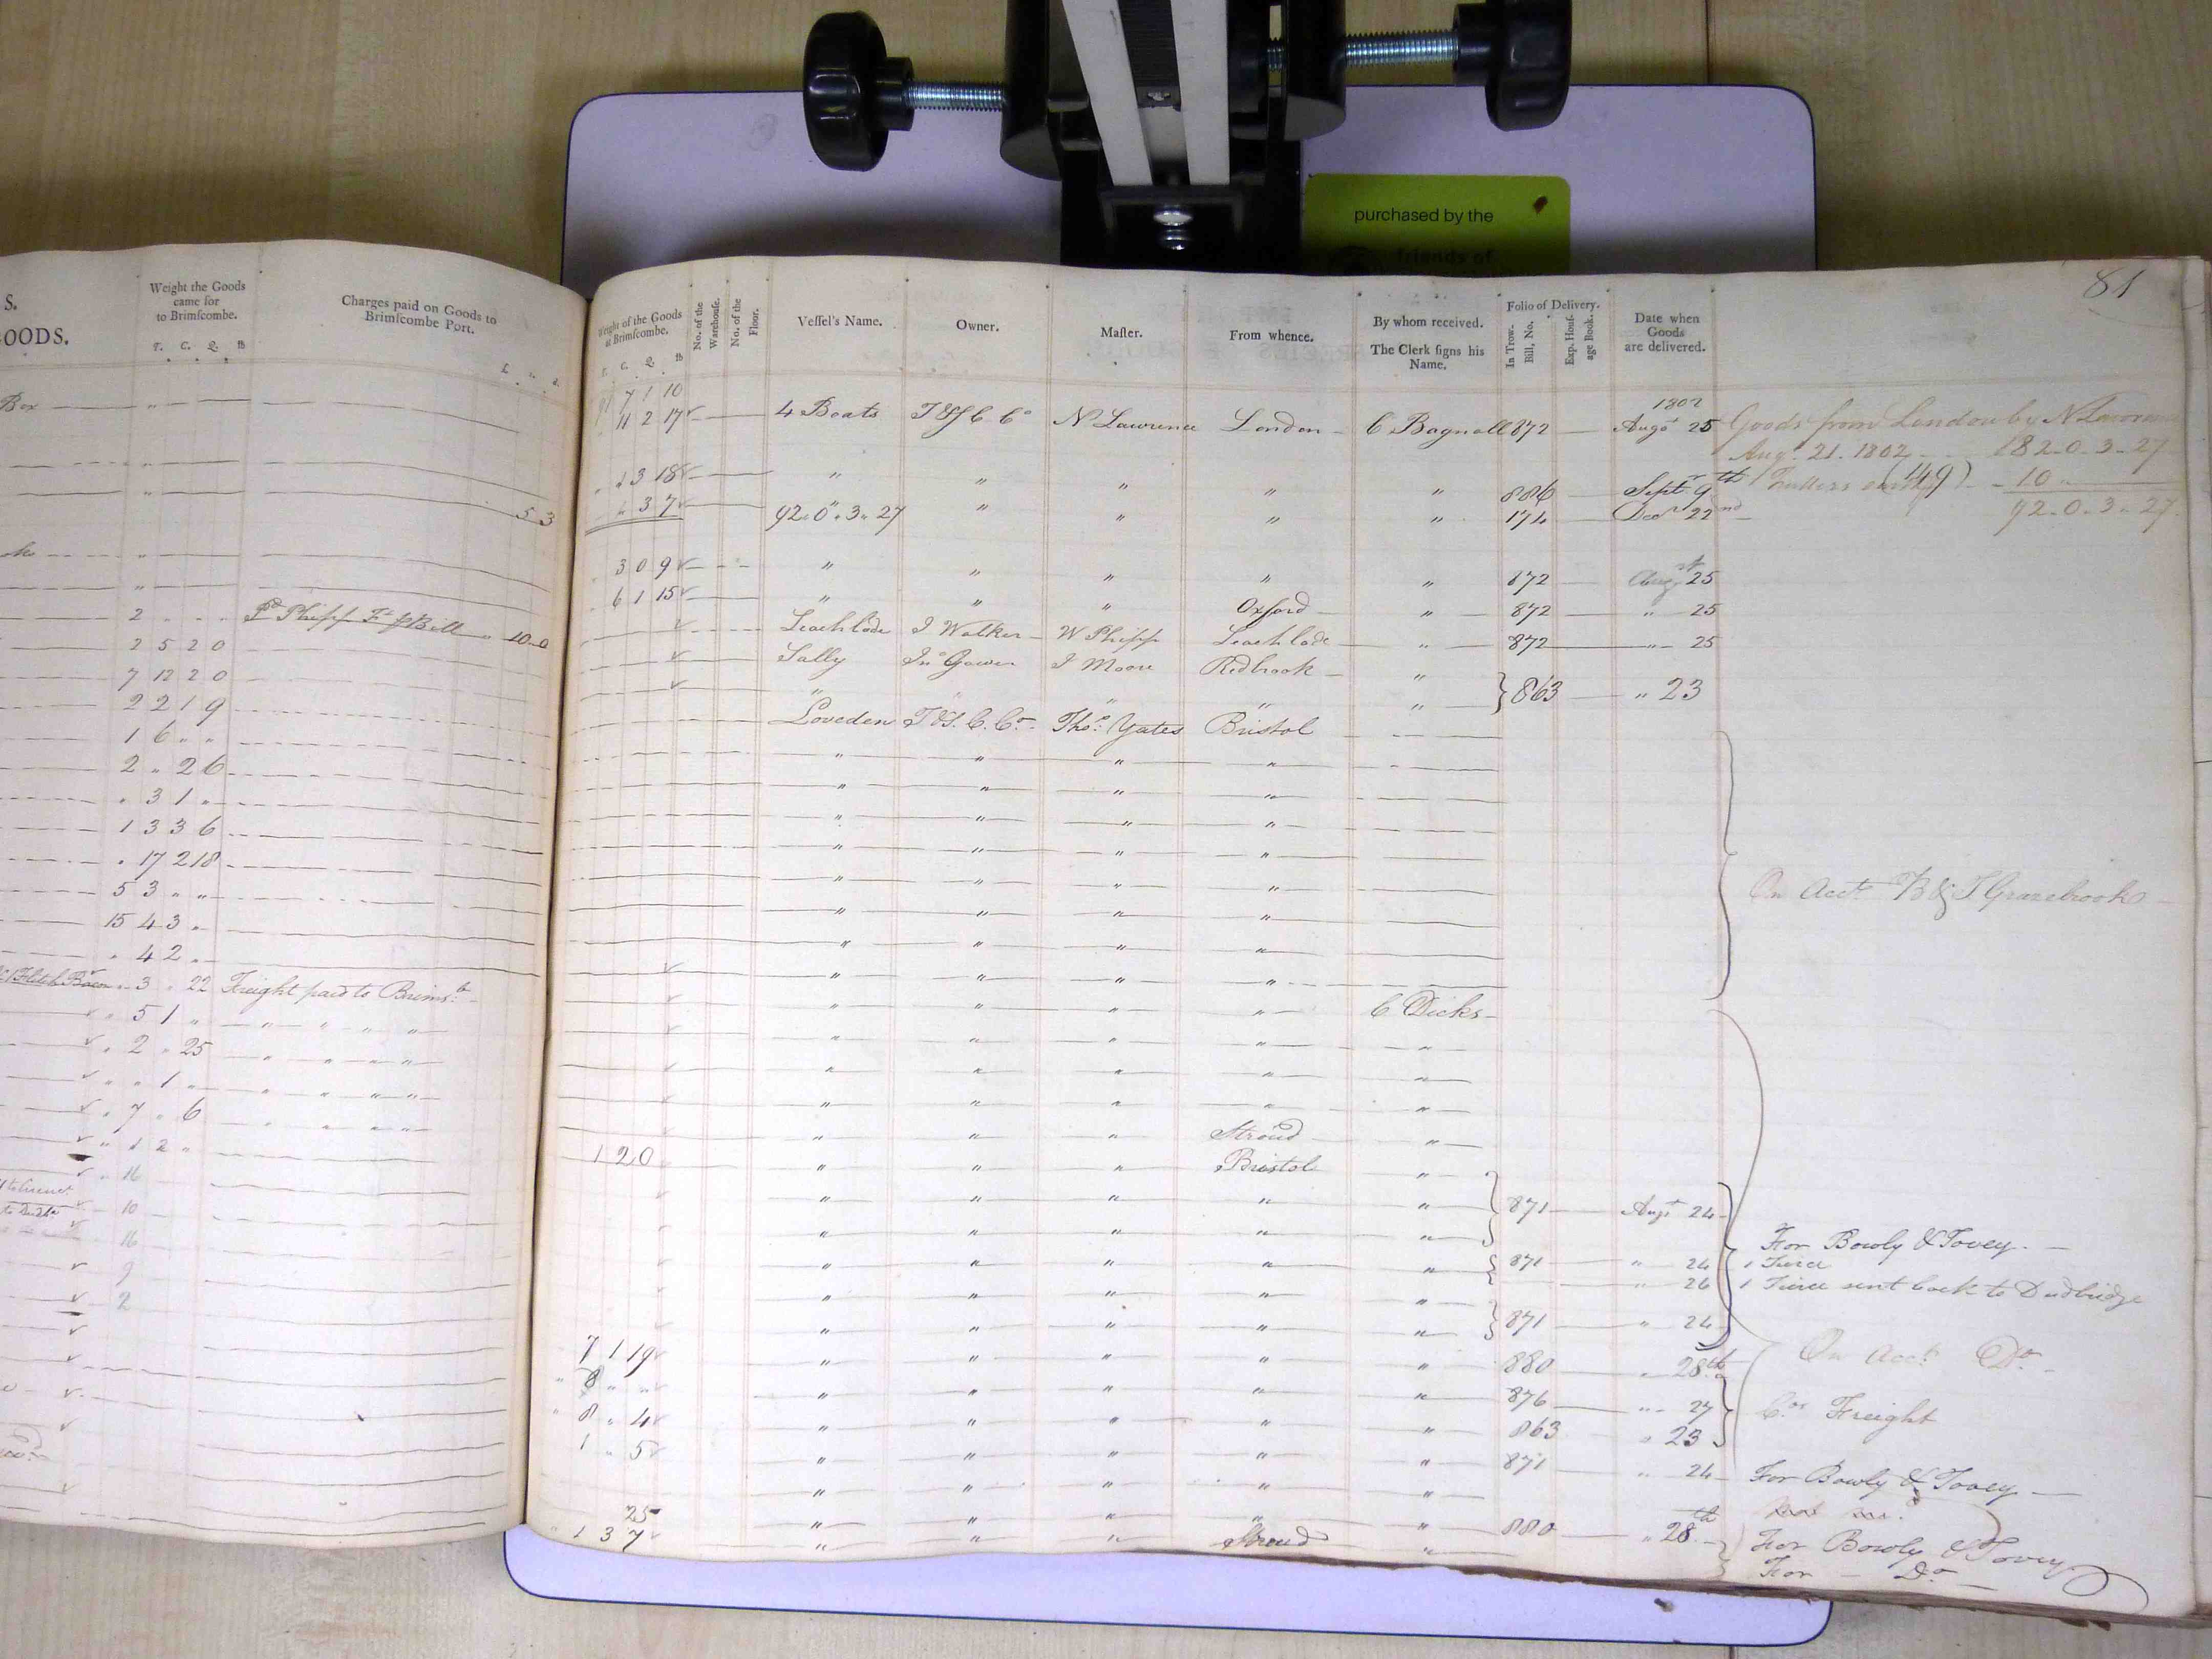 purchased by the
friends of
S.
GOODS.
Weight the Goods
came for
to Brimſcombe.
T. C. Q. lb
Charges paid on Goods to
Brimſcombe Port.
Box
5 3
2
Pd Phipp Ft pBill 10 0
2 5 2 0
7 12 2 0
2 2 1 9
1 6 " "
2 " 2 6
" 3 1 "
1 3 3 6
" 17 2 18
5 3 " "
15 4 3 "
" 4 2 "
Flitch Bacon " 3 " 22 Freight paid to Brims:
" 5 1 "
" 2 " 25
" " 1 "
" 7 " 6
" 1 2 "
" 16
10
16
9
2
81
Weight of the Goods
at Brimſcombe.
T. C. Q. lb
No. of the
Warehouſe.
No. of the
Floor.
Veſſel's Name.
Owner.
Maſter.
From whence.
By whom received.
The Clerk ſigns his
Name.
Folio of Delivery.
In Trow-
Bill, No.
Exp. Houſ-
age Book.
Date when
Goods
are delivered.
7 1 10
1802
11 2 17 4 Boats T&S C Co N Lawrence London C Bagnall 872 Augt 25 Goods from London by N Lawrence
Augt. 21. 1802 182-0-3-27
3 18 " " " " " 886 Sept 9th (149) 10 "
" 3 7 92 " 0 " 3 " 27 " " " " 174 Decr 22nd 92-0-3-27
3 0 9 " " " " " 872 Augst 25
6 1 15 " " " Oxford " 872 " 25
Leachlade J Walker W Phipp Leachlade " 872 " 25
Sally Jno Gower J Moore Redbrook " 863 " 23
" " " " "
Loveden T&S. C. Co. Thos: Yates Bristol
On Acct B & J Grazebrook
C Dicks
Stroud
1 2 0 Bristol
871 Augt 24
For Bowly & Tovey.
871 " 24 1 Tierce
" 26 1 Tierce sent back to Dudbridge
871 " 24
7 1 19 " " " " " 880 " 28th On Acct Do
" 8 " " " " " " " 876 " 27
Co's Freight
" 8 " 4 " " " " " 863 " 23
1 " 5 " " " " " 871 " 24 For Bowly & Tovey
25
880 " 28th For Bowly & Tovey
1 3 7 " " " Stroud " For Do